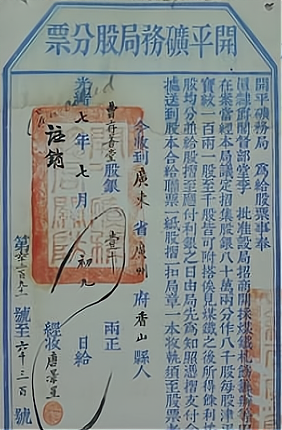 開平礦務局股分票
開平礦務局 為給股票事奉
部堂李 批准設局招商開採煤鐵
在案當經本局議定招集股銀八十萬兩分作八千股每股津平
寶紋一百兩一股至千股皆可附搭俟見煤鐵之後所得餘利
股均分並給股摺至應付利銀之日由局先為知照憑摺支付
送到股本合給聯票一紙股摺一扣局章一本收執須至股票者
今收到廣東省廣州府香山縣人
股銀壹千兩正
光緒七年七月初九日給
註銷
經收唐
第六千二百九一號至六千三百號